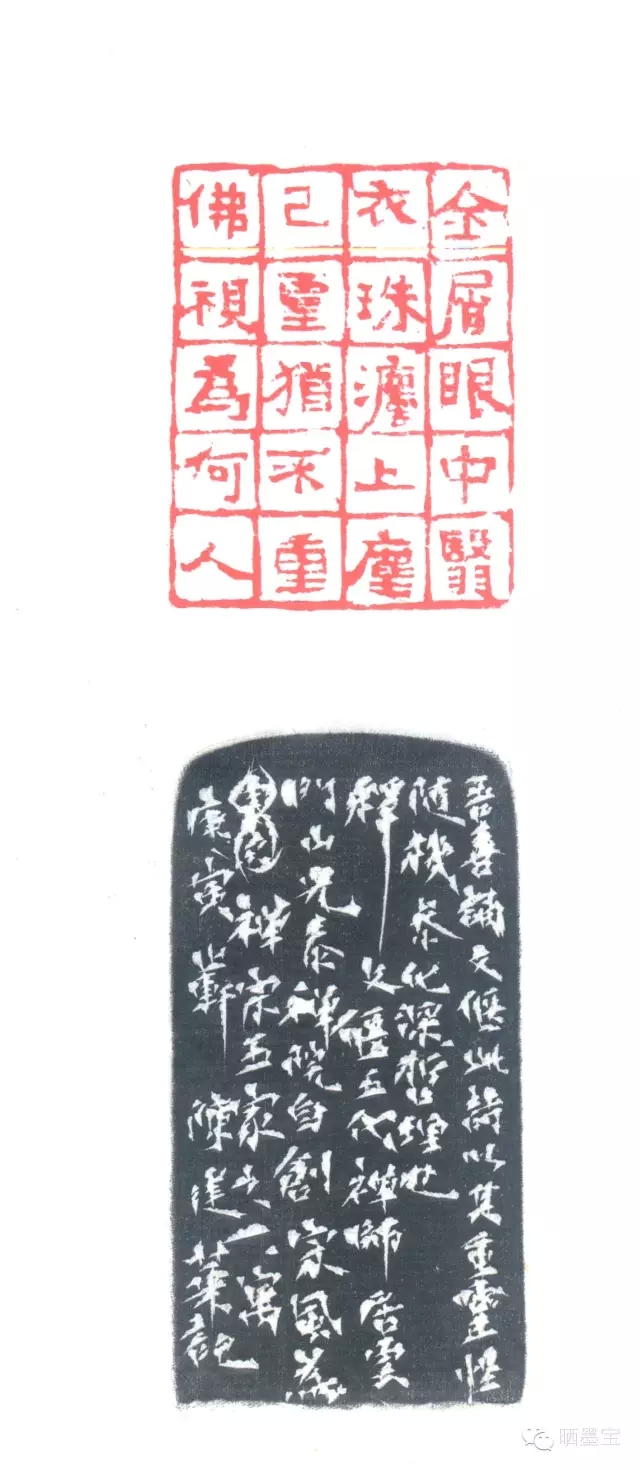 金屑眼中翳
衣珠灋上塵
己靈猶不重
佛視為何人
吾喜誦文偃此詩以其重靈性
隨機參化深哲理也
釋文偃五代禪師居雲
門山光泰禪院自創宗風為
中國禪宗五家之一
庚寅 陳 記
晒墨宝